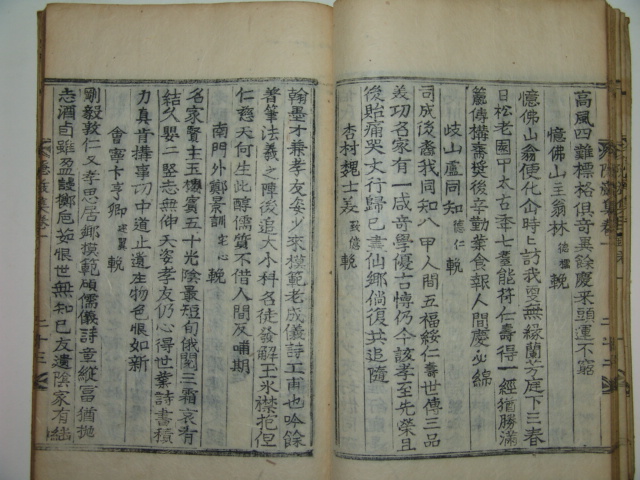 高風四難標格俱奇異餘慶來頭運不窮
憶佛山主翁林 輓
憶佛山翁便化仚時上訪我更無緣蘭芳庭下三春
日松老園中太古年七耋能符仁壽得一經猶勝滿
籯傳構喬奬後辛勤業食報人間慶必綿
岐山盧同知 德仁 輓
司成後裔我同知八甲人間五福綏仁壽世傳三品
美功名家有一威奇學優古博仍今該孝至先榮且
後貽痛哭大行歸已晝仙鄉倘復共追隨
杏村魏士美 致瞻 輓
翰墨才兼孝友姿少來模範老成儀詩工甫也吟餘
著筆法羲之陣後追大小科名徒發解玉氷襟抱但
仁慈天何生此醇儒質不借人間反哺期
南門外鄭景訓 宅心 輓
名家賢主玉樓賓五十光陰最短旬俄闃三霜哀有
結久嬰二竪志無伸天姿孝友仍心得世業詩書積
力眞肯搆事功中道止遺生物色恨如新
會寧卞亨卿 輓
剛毅敦仁又孝思居鄉模範頎儒儀詩章縱富猶拋
志酒自雖盈謾鄉巵茹恨世無知已友遺陰家有